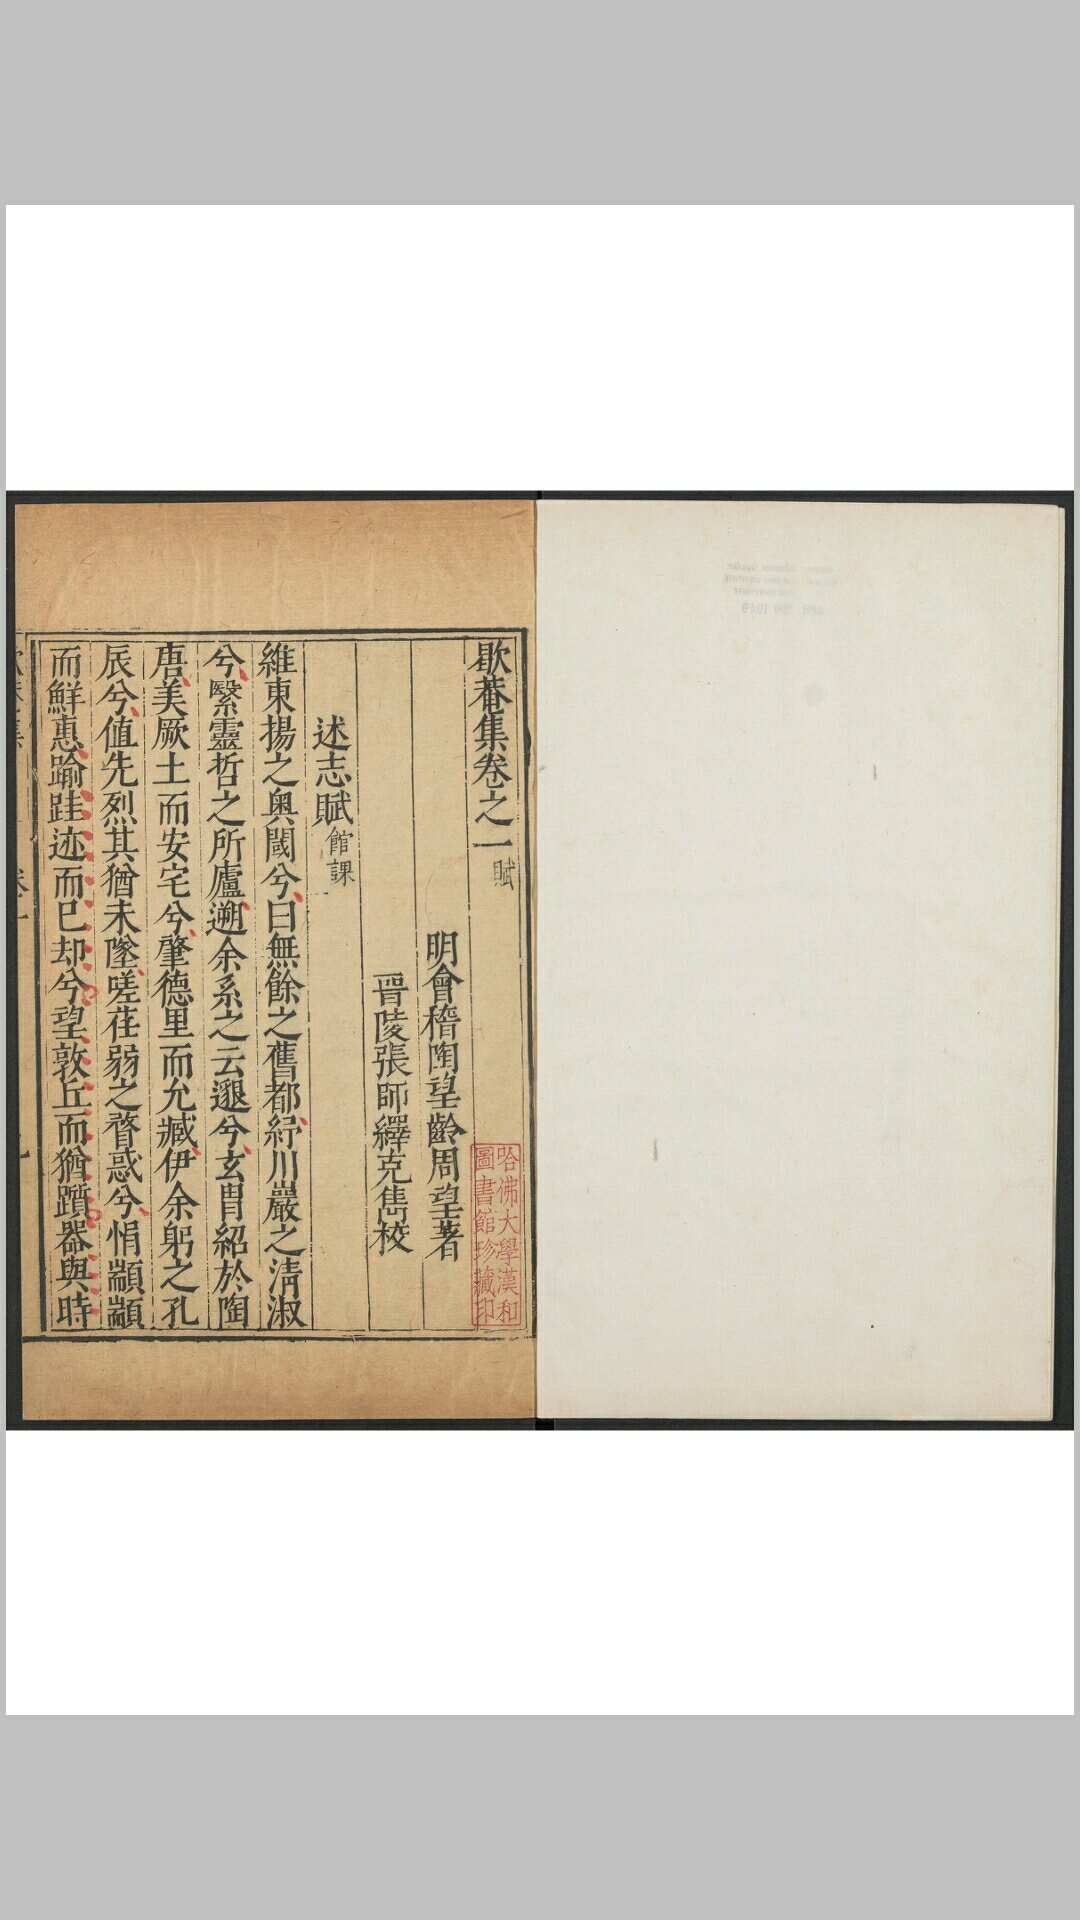 歇菴集卷之一賦
明會稽陶望齡周望著
晉陵張師繹克雋校
述志賦館課
維東揚之奧閾兮曰無餘之舊都紆川巖之淸淑
兮繄靈哲之所廬遡余系之云邈兮玄胄紹於陶
唐美厥土而安宅兮肇德里而允臧伊余躬之孔
辰兮値先烈其猶未墜嗟荏弱之瞀惑兮悁顓顓
而鮮惠踰跬迹而已却兮望敦丘而猶躓器與時
哈佛大學漢和
圖書館珍藏印